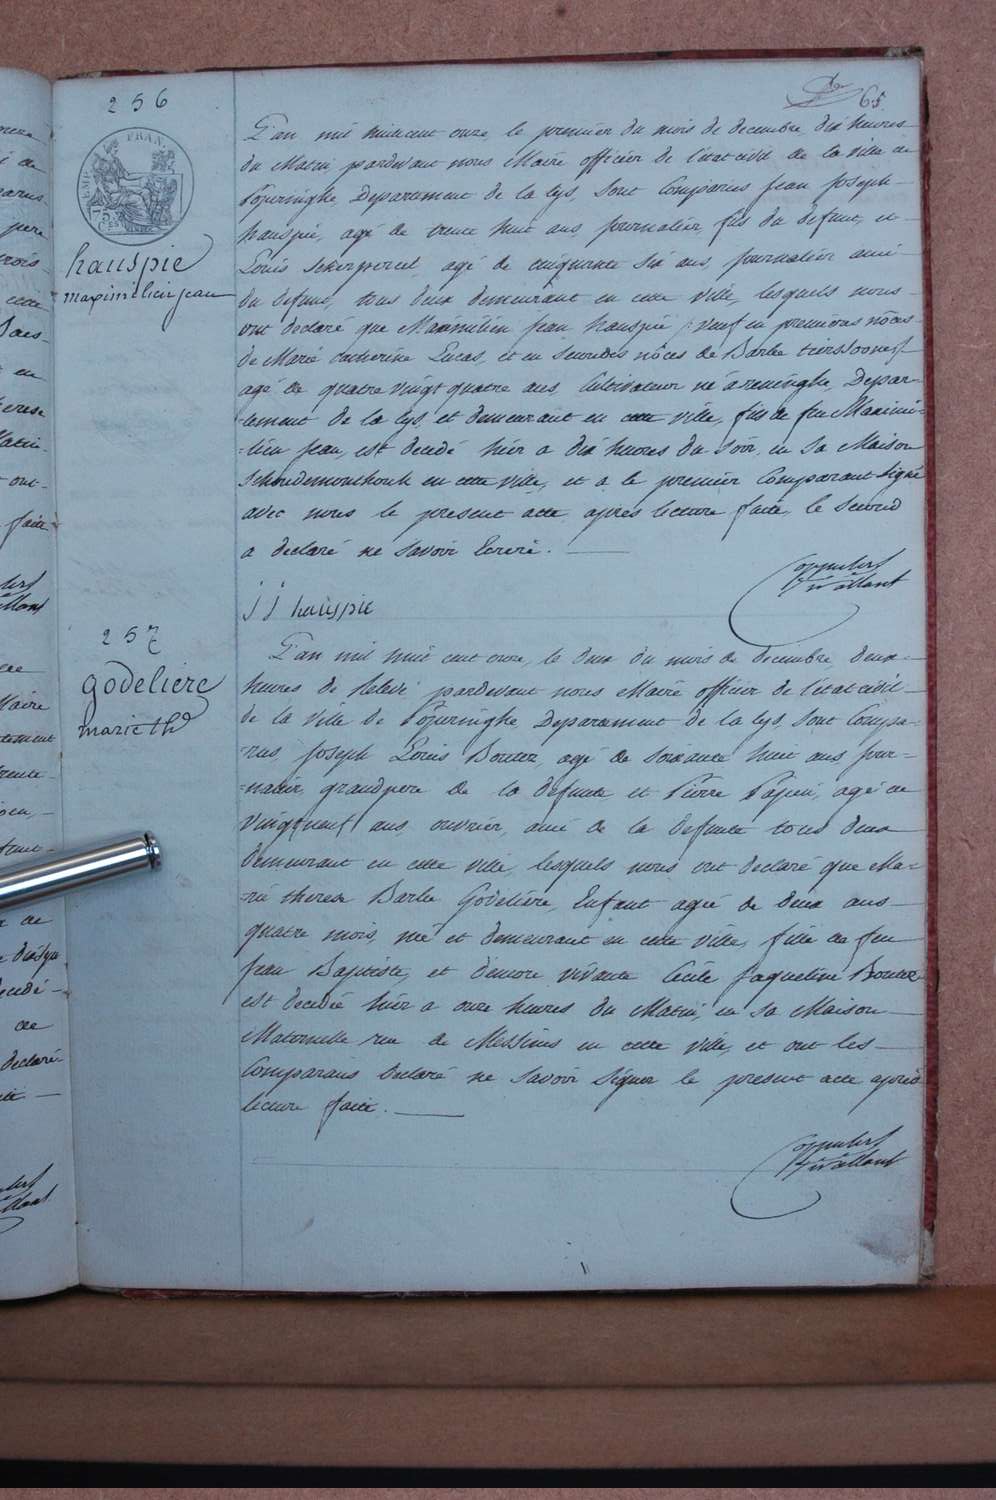 65
256
hauspie
maximilien jean
L'an mil huit cent onze, le premier du mois de decembre, dix heures
du Matin, pardevant nous Maire officier de l'etat civil de la ville de
Poperinghe, Departement de la lys, sont Comparus Jean Joseph
hauspie, agé de trente huit ans, journalier, fils du defunt, et
Louis agé de cinquante six ans, journalier ami
du defunt, tous deux demeurant en cette ville, lesquels nous
ont declaré que Maximilien Jean hauspie veuf en premieres nôces
de Marie Catherine Lucas, et en secondes nôces de Barbe
agé de quatre vingt quatre ans, Cultivateur né à reninghe, Depar-
-tement de la lys, et demeurant en cette ville, fils de feu Maximi-
-lien Jean, est decedé hier a dix heures du soir, en sa Maison
en cette ville, et a le premier Comparant signé
avec nous le present acte, après lecture faite, le second
a declaré ne savoir Ecrire.
J J hauspie
257
godeliere
marie th
L'an mil huit cent onze, le deux du mois de decembre, deux
heures de relevé pardevant nous Maire officier de l'etat civil
de la ville de Poperinghe, Departement de la lys, sont Compa-
-rus, Joseph Louis agé de soixante huit ans jour-
-nalier, grandpere de la defunte et Pierre agé de
vingt neuf ans, ouvrier, ami de la defunte tous deux
demeurant en cette ville, lesquels nous ont declaré que Ma-
-rie therese Barbe Godeliere, Enfant agée de deux ans
quatre mois, née et demeurant en cette ville, fille de feu
Jean Baptiste, et d'encore vivante Cecile Jaqueline
est decedée hier a onze heures du Matin, en sa Maison
Maternelle rue de Messines en cette ville, et ont les
Comparans declaré ne savoir signer le present acte après
lecture faite.